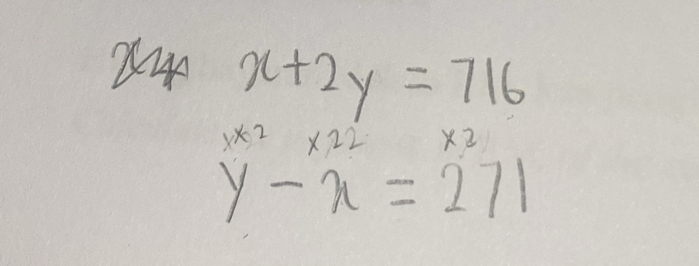 x+2y = 716
×2 ×2 ×2
y - x = 271